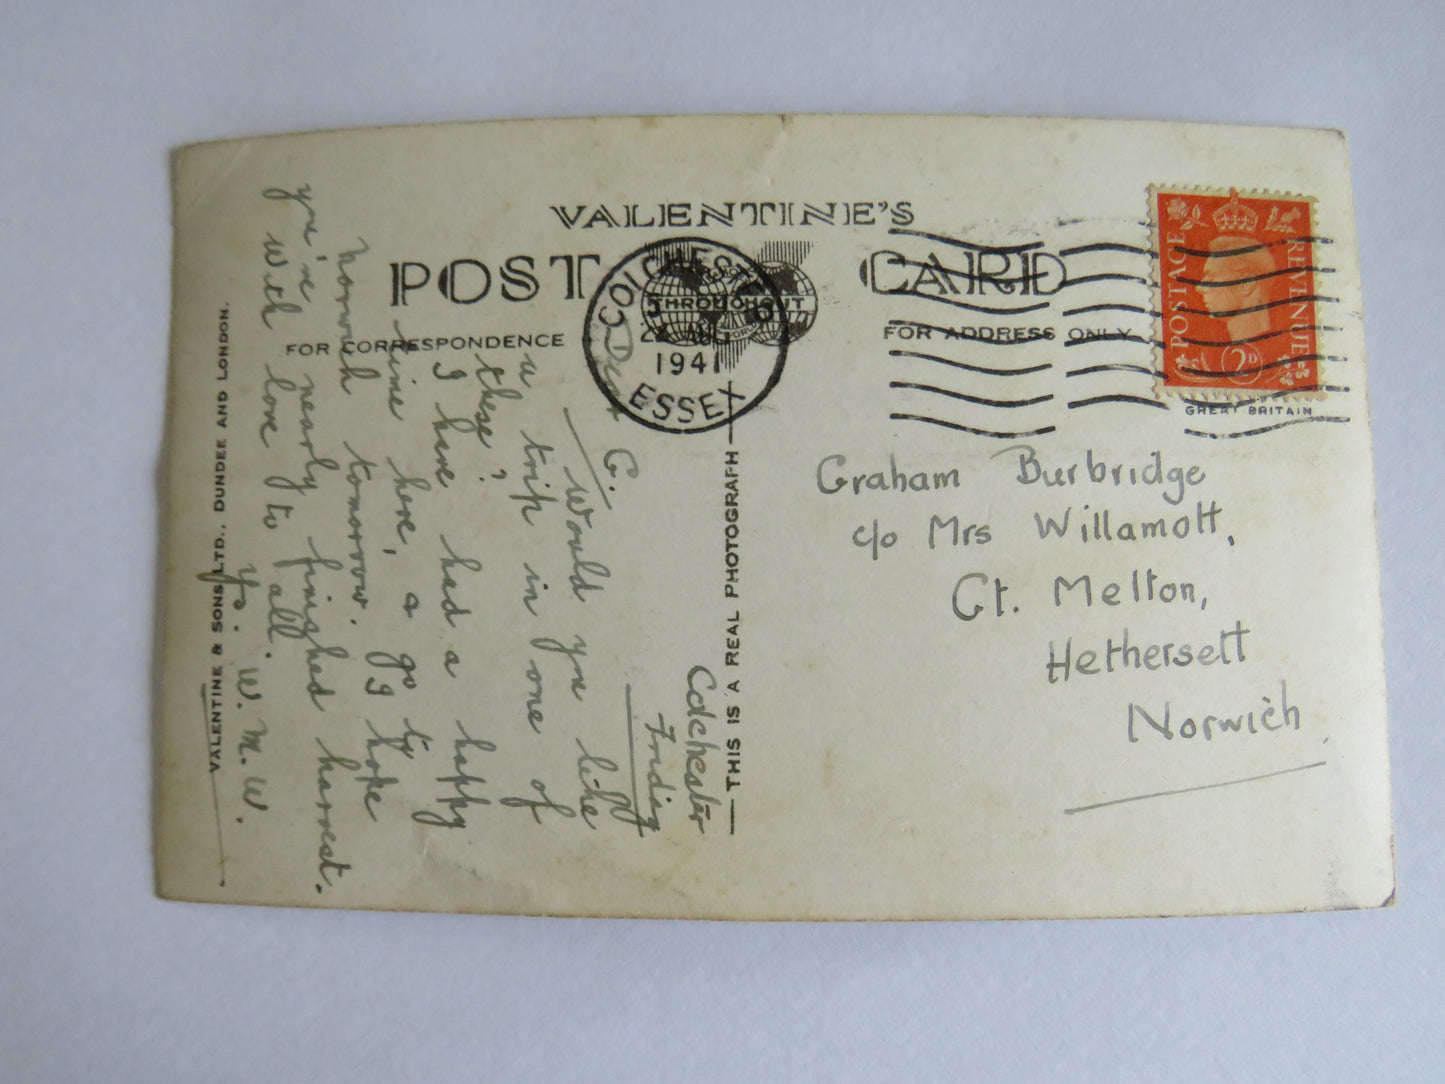 VALENTINE'S
POST CARD
FOR CORRESPONDENCE
FOR ADDRESS ONLY
THROUGHOUT
WORLD
COLCHESTER
AUG
1941
ESSEX
POSTAGE
REVENUE
2D
GREAT BRITAIN
Graham Burbridge
c/o Mrs Willamott,
Gt. Melton,
Hethersett
Norwich
THIS IS A REAL PHOTOGRAPH
VALENTINE & SONS LTD., DUNDEE AND LONDON.
Colchester
Friday
Dear G.
Would you like
a trip in one of
these?
I have had a happy
time here, & go to
Norwich tomorrow. I hope
you've nearly finished harvest.
With love to all.
W. M. W.